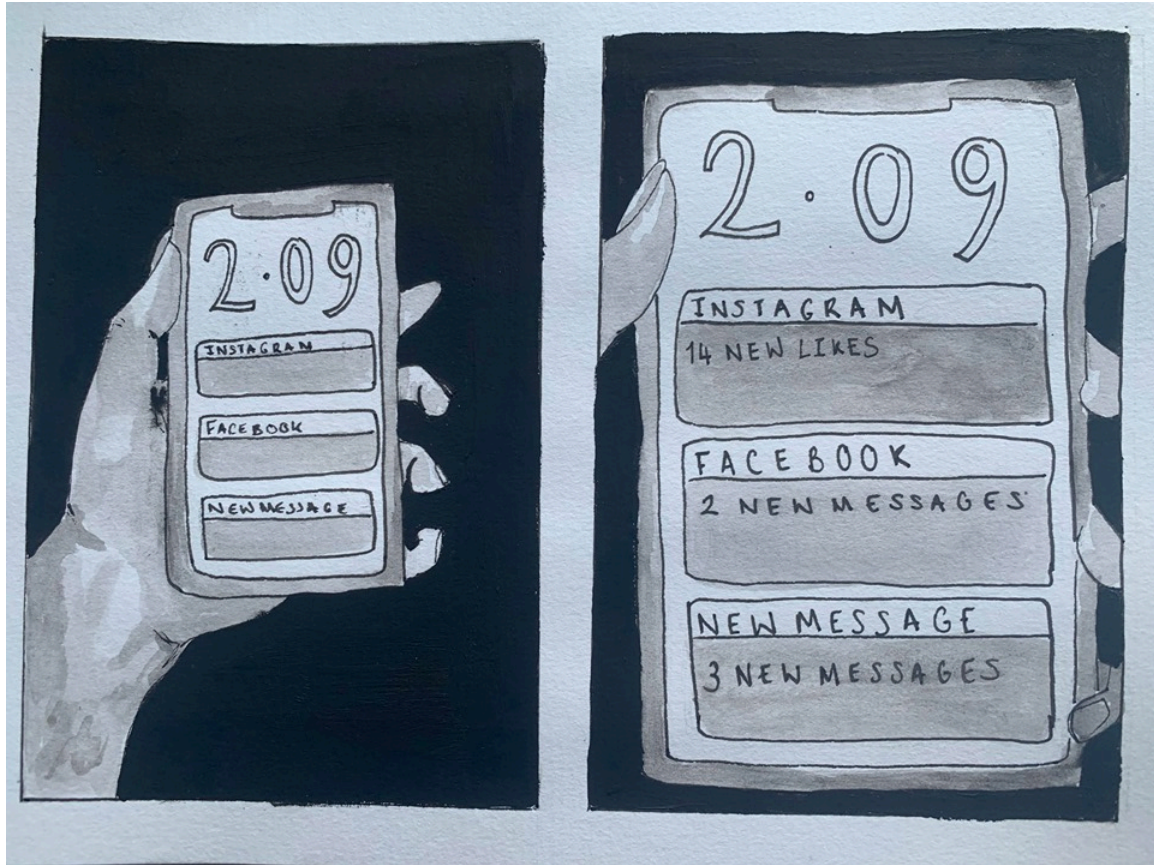 2.09
INSTAGRAM
FACEBOOK
NEW MESSAGE
2.09
INSTAGRAM
14 NEW LIKES
FACEBOOK
2 NEW MESSAGES
NEW MESSAGE
3 NEW MESSAGES